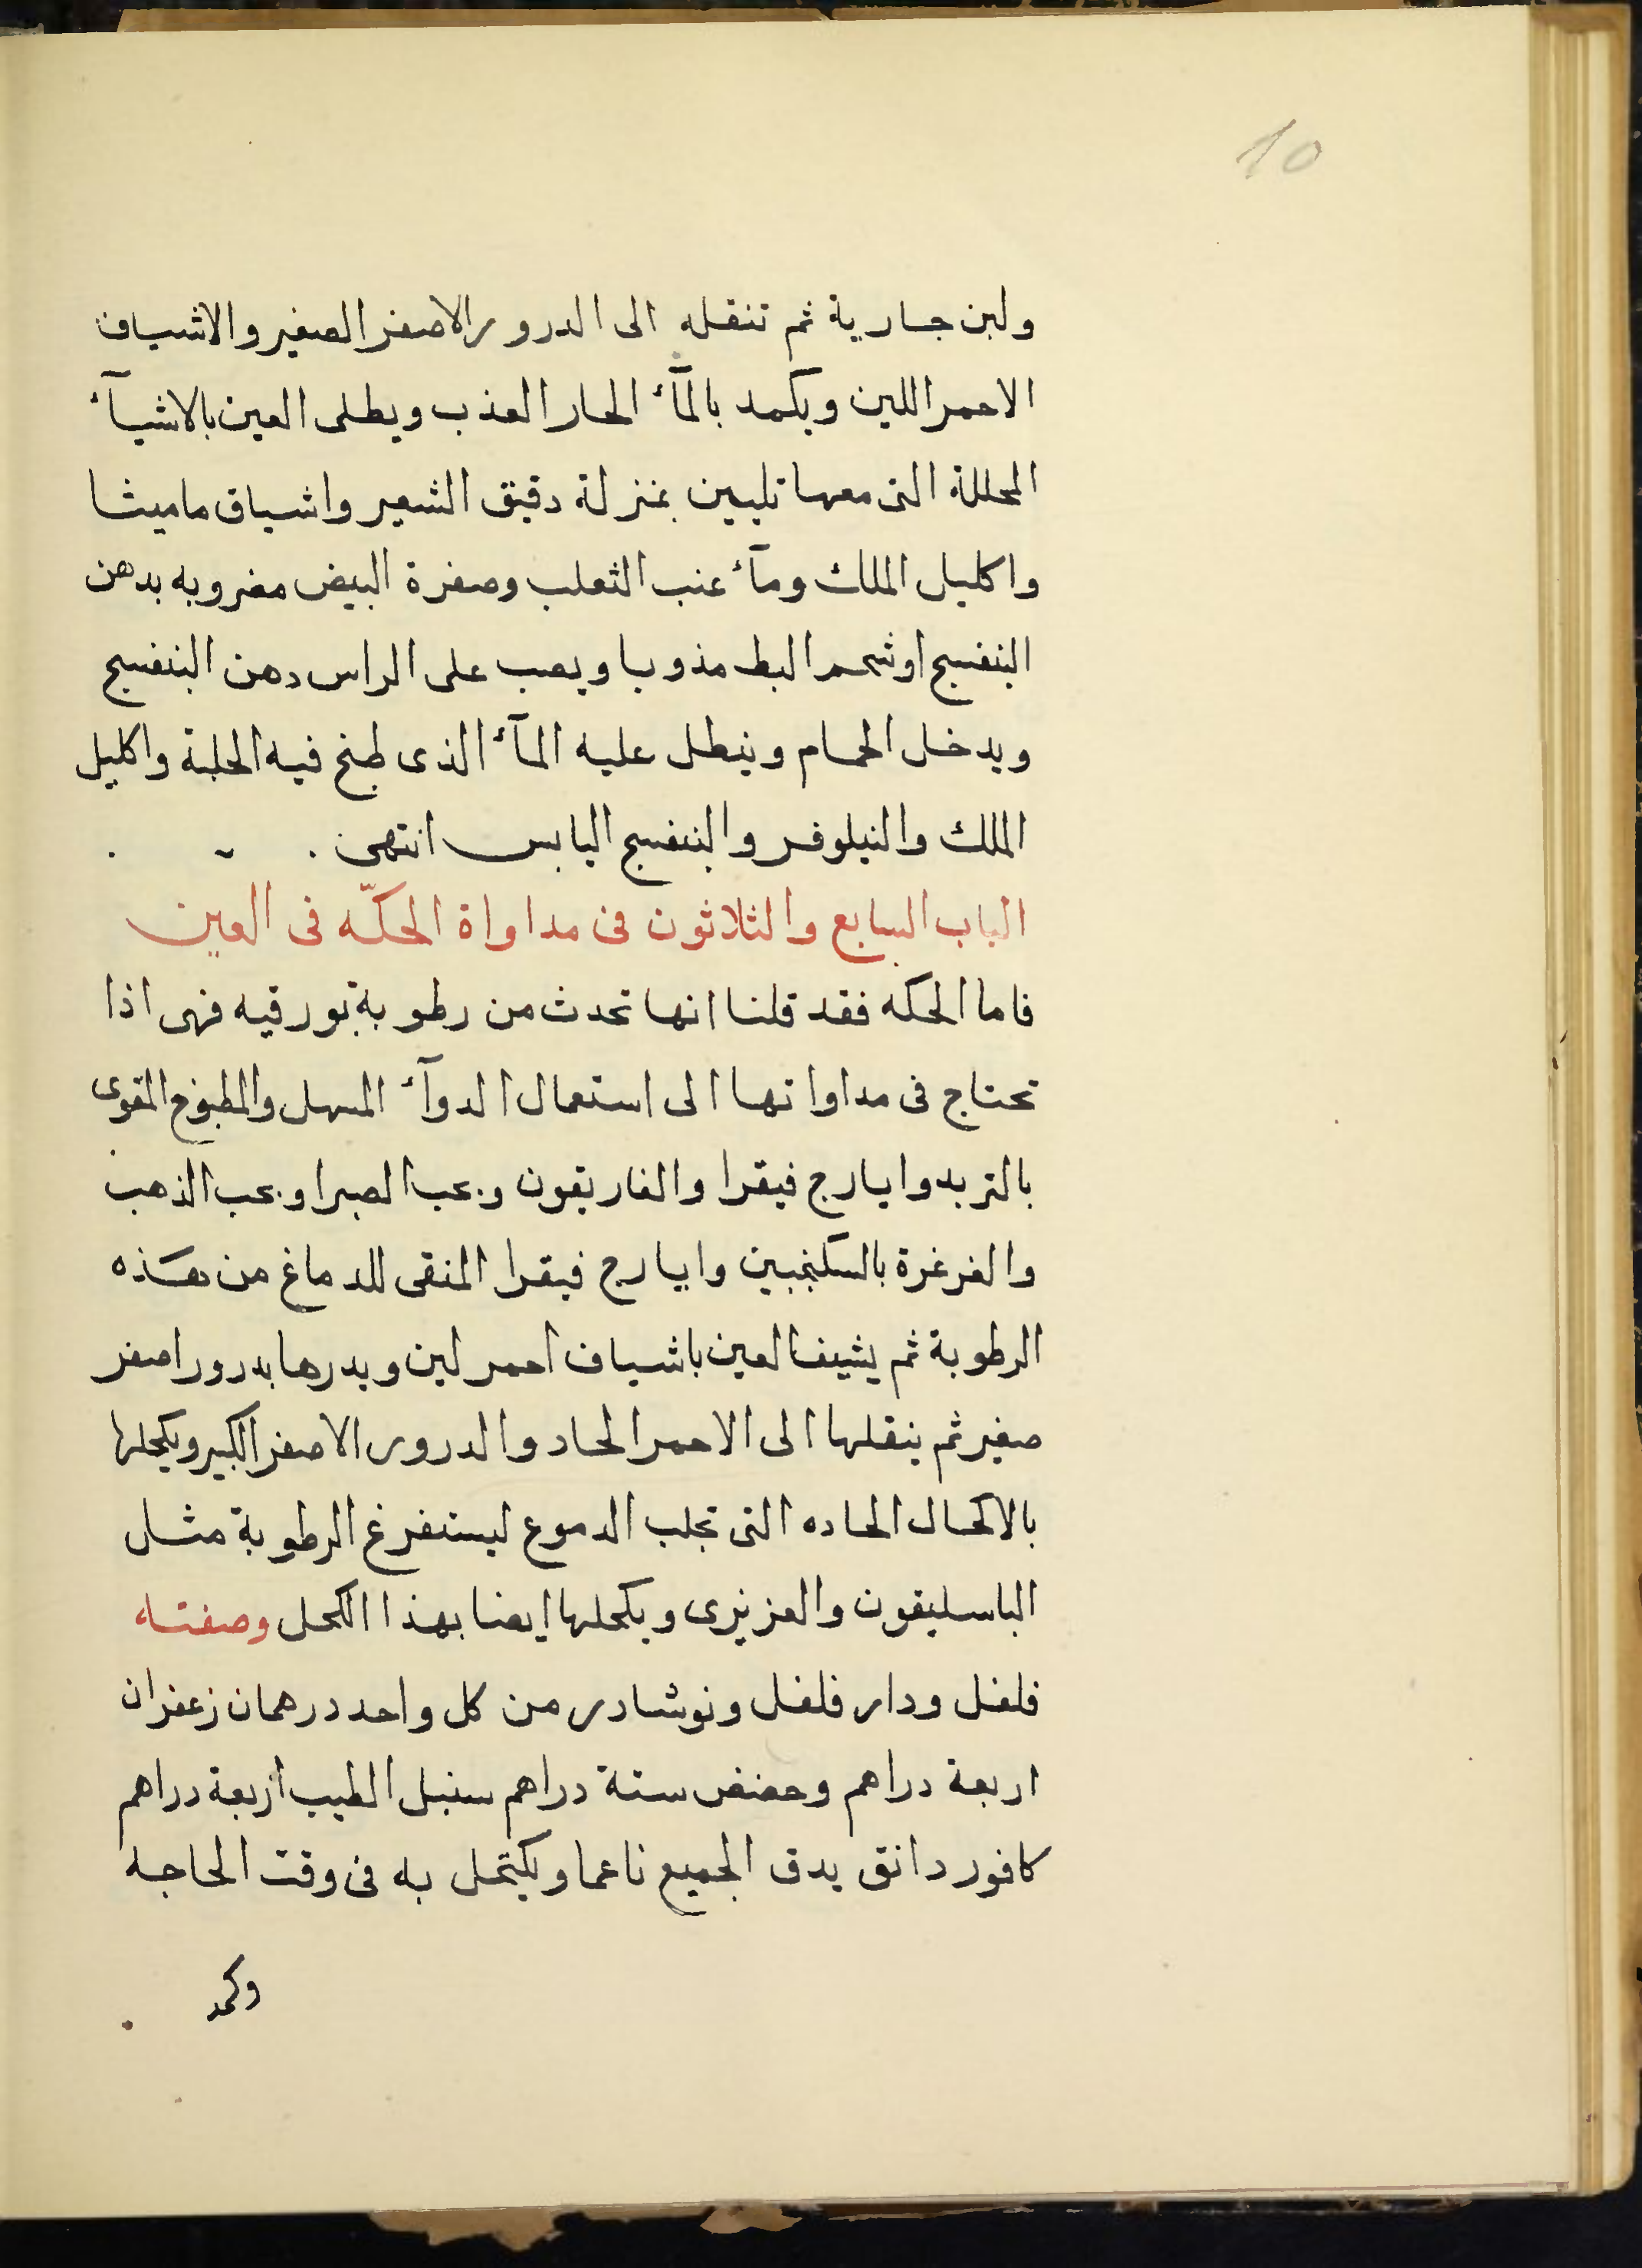 10
ولبن جارية ثم تنقله الى الدرور الاصفر الصغير والاشياف
الاحمر اللين ويكمد بالمآء الحار العذب ويطلى العين بالاشيآء
المحللة التى معها تليين بمنزلة دقيق الشعير واشياف ماميثا
واكليل الملك ومآء عنب الثعلب وصفرة البيض مضروبه بدهن
البنفسج اوشحم البط مذوبا ويصب على الراس دهن البنفسج
ويدخل الحمام وينطل عليه المآء الذى طبخ فيه الحلبة واكليل
الملك والنيلوفر والبنفسج اليابس انتهى .
الباب السابع والثلاثون فى مداواة الحكّه فى العين
فاما الحكه فقد قلنا انها تحدث من رطوبة بورقيه فهى اذا
تحتاج فى مداواتها الى استعمال الدوآء المسهل والمطبوخ المقوى
بالتربد وايارج فيقرا والغاريقون وبحب الصبرا وبحب الذهب
والغرغرة بالسكنجبين وايارج فيقرا المنقى للدماغ من هذه
الرطوبة ثم يشيف العين باشياف احمر لين ويدرها بدرور اصفر
صغير ثم ينقلها الى الاحمر الحاد والدرور الاصفر الكبير ويكحلها
بالاكحال الحاده التى تجلب الدموع ليستفرغ الرطوبة مثل
الباسليقون والعزيزى ويكحلها ايضا بهذا الكحل وصفته
فلفل ودار فلفل ونوشادر من كل واحد درهمان زعفران
اربعة دراهم وحضض ستة دراهم سنبل الطيب اربعة دراهم
كافور دانق يدق الجميع ناعما ويكتحل به فى وقت الحاجه